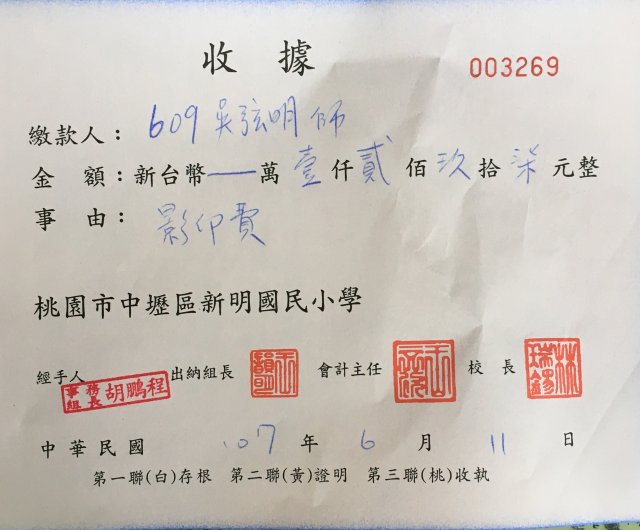 收據
003269
繳款人：609吳弦明師
金額：新台幣—萬壹仟貳佰玖拾柒元整
事由：影印費
桃園市中壢區新明國民小學
經手人 事務組長胡鵬程 出納組長 會計主任 校長
中華民國107年6月11日
第一聯(白)存根 第二聯(黃)證明 第三聯(桃)收執